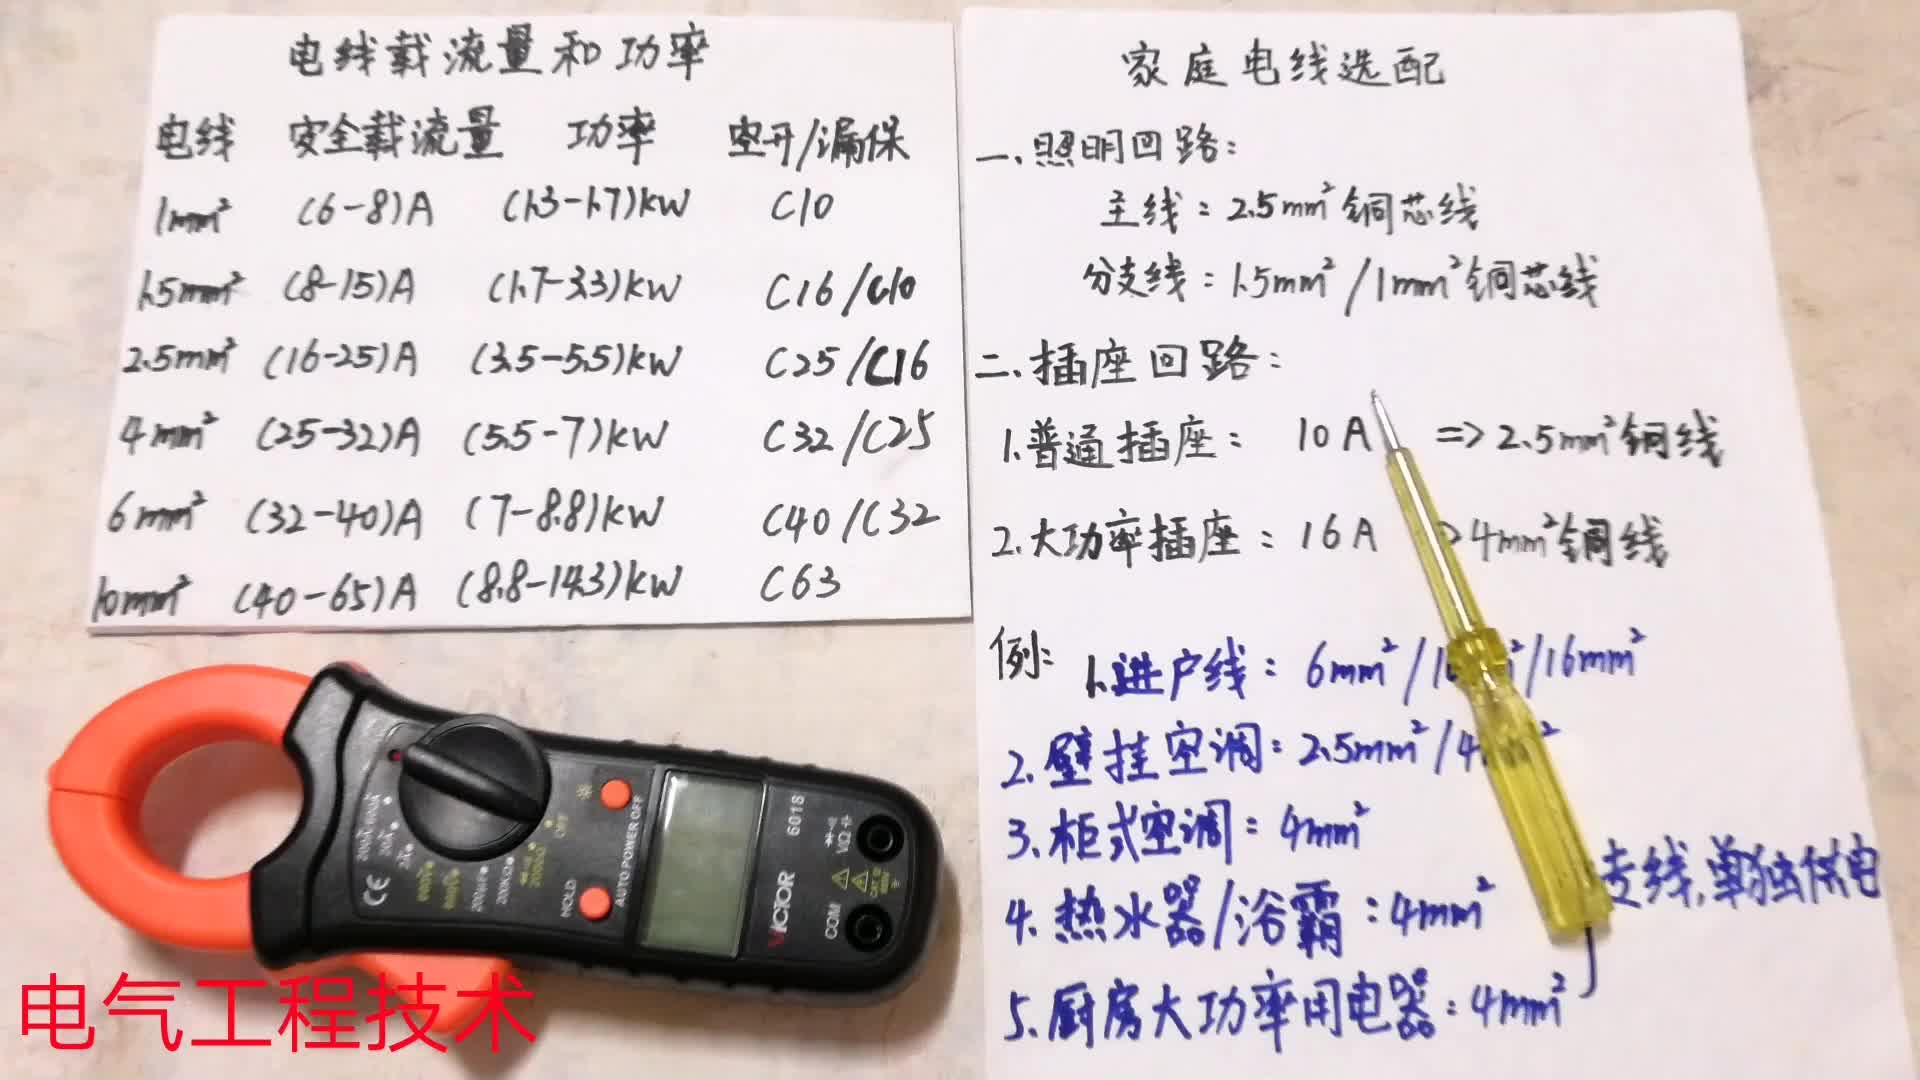 电线载流量和功率
电线 安全载流量 功率 空开/漏保
1mm² (6-8)A (1.3-1.7)kW C10
1.5mm² (8-15)A (1.7-3.3)kW C16/C10
2.5mm² (16-25)A (3.5-5.5)kW C25/C16
4mm² (25-32)A (5.5-7)kW C32/C25
6mm² (32-40)A (7-8.8)kW C40/C32
10mm² (40-65)A (8.8-14.3)kW C63
家庭电线选配
一、照明回路:
主线:2.5mm²铜芯线
分支线:1.5mm²/1mm²铜芯线
二、插座回路:
1.普通插座: 10A => 2.5mm²铜线
2.大功率插座:16A >4mm²铜线
例: 1.进户线:6mm²/1 ²/16mm²
2.壁挂空调:2.5mm²/4 ²
3.柜式空调:4mm²
4.热水器/浴霸:4mm²
专线,单独供电
5.厨房大功率用电器:4mm²
VICTOR 6018
HOLD
AUTO POWER OFF
OFF
COM
VΩ
CE
200KΩ
电气工程技术